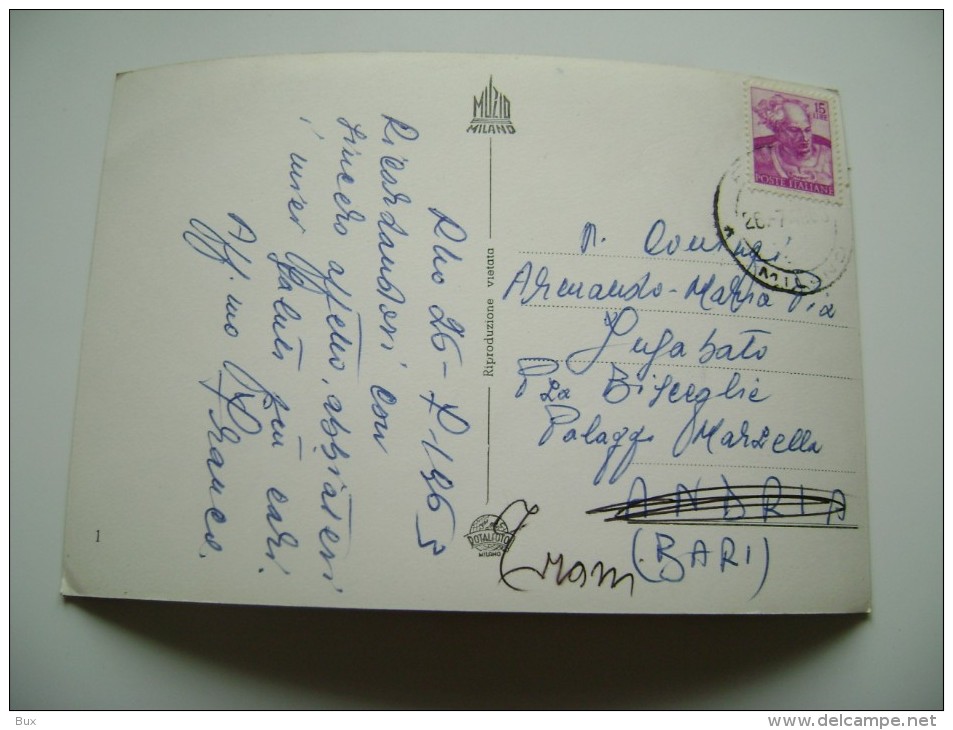 Rho 26-7-1965
Ricordandovi con
sincero affetto, abbiatevi
i miei saluti più cari.
Aff.mo Franco.
MUZIO
MILANO
Riproduzione vietata
ROTALFOTO
MILANO
1
15
LIRE
POSTE ITALIANE
26.7
Coniugi
Armando-Maria Pia
Lugabato
P.za Bisceglie
Palazzo Marzella
ANDRIA
(BARI)
Trani
Bux
www.delcampe.net